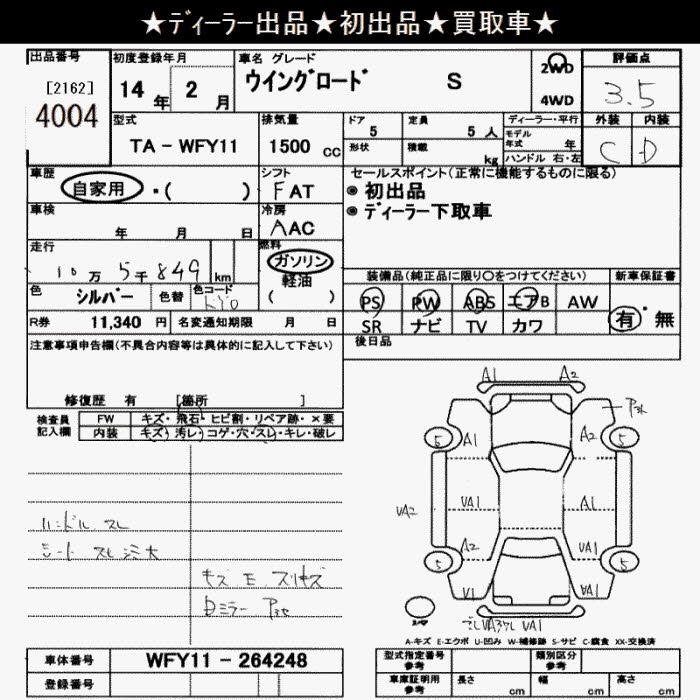 ★ディーラー出品★初出品★買取車★
出品番号
[2162]
4004
初度登録年月
14 年 2 月
車名 グレード
ウイングロード S
2WD
4WD
評価点
3.5
型式
TA - WFY11
排気量
1500 cc
ドア
5
形状
定員
5 人
積載
kg
ディーラー・平行
モデル年式 年
ハンドル 右・左
外装 内装
C D
車歴
自家用 ・( )
シフト
FAT
セールスポイント(正常に機能するものに限る)
◉ 初出品
◉ ディーラー下取車
車検
年 月 日
冷房
AAC
走行
10万 5千 849 km
燃料
ガソリン
軽油
( )
色
シルバー
色替
色コード
装備品(純正品に限り○をつけてください)
新車保証書
PS PW ABS エアB AW
SR ナビ TV カワ
有・無
R券 11,340 円
名変通知期限 月 日
後日品
注意事項申告欄(不具合内容等は具体的に記入して下さい)
修復歴 有 [箇所 ]
検査員記入欄
FW キズ・飛石・ヒビ割・リペア跡・×要
内装 キズ・汚レ・コゲ・穴・スレ・キレ・破レ
ハンドル スレ
シート スレ シミ大
キズ E スリキズ
ミラー
A1 A2
A1 A2
5 5
VA2 VA1 VA1 A1
A2 UA1
5 5
V1 VA1
VA1
A-キズ E-エクボ U-凹み W-補修跡 S-サビ C-腐食 XX-交換済
車体番号 WFY11 - 264248
登録番号
型式指定番号 参考
類別区分 参考
車庫証明用 参考
長さ cm
幅 cm
高さ cm